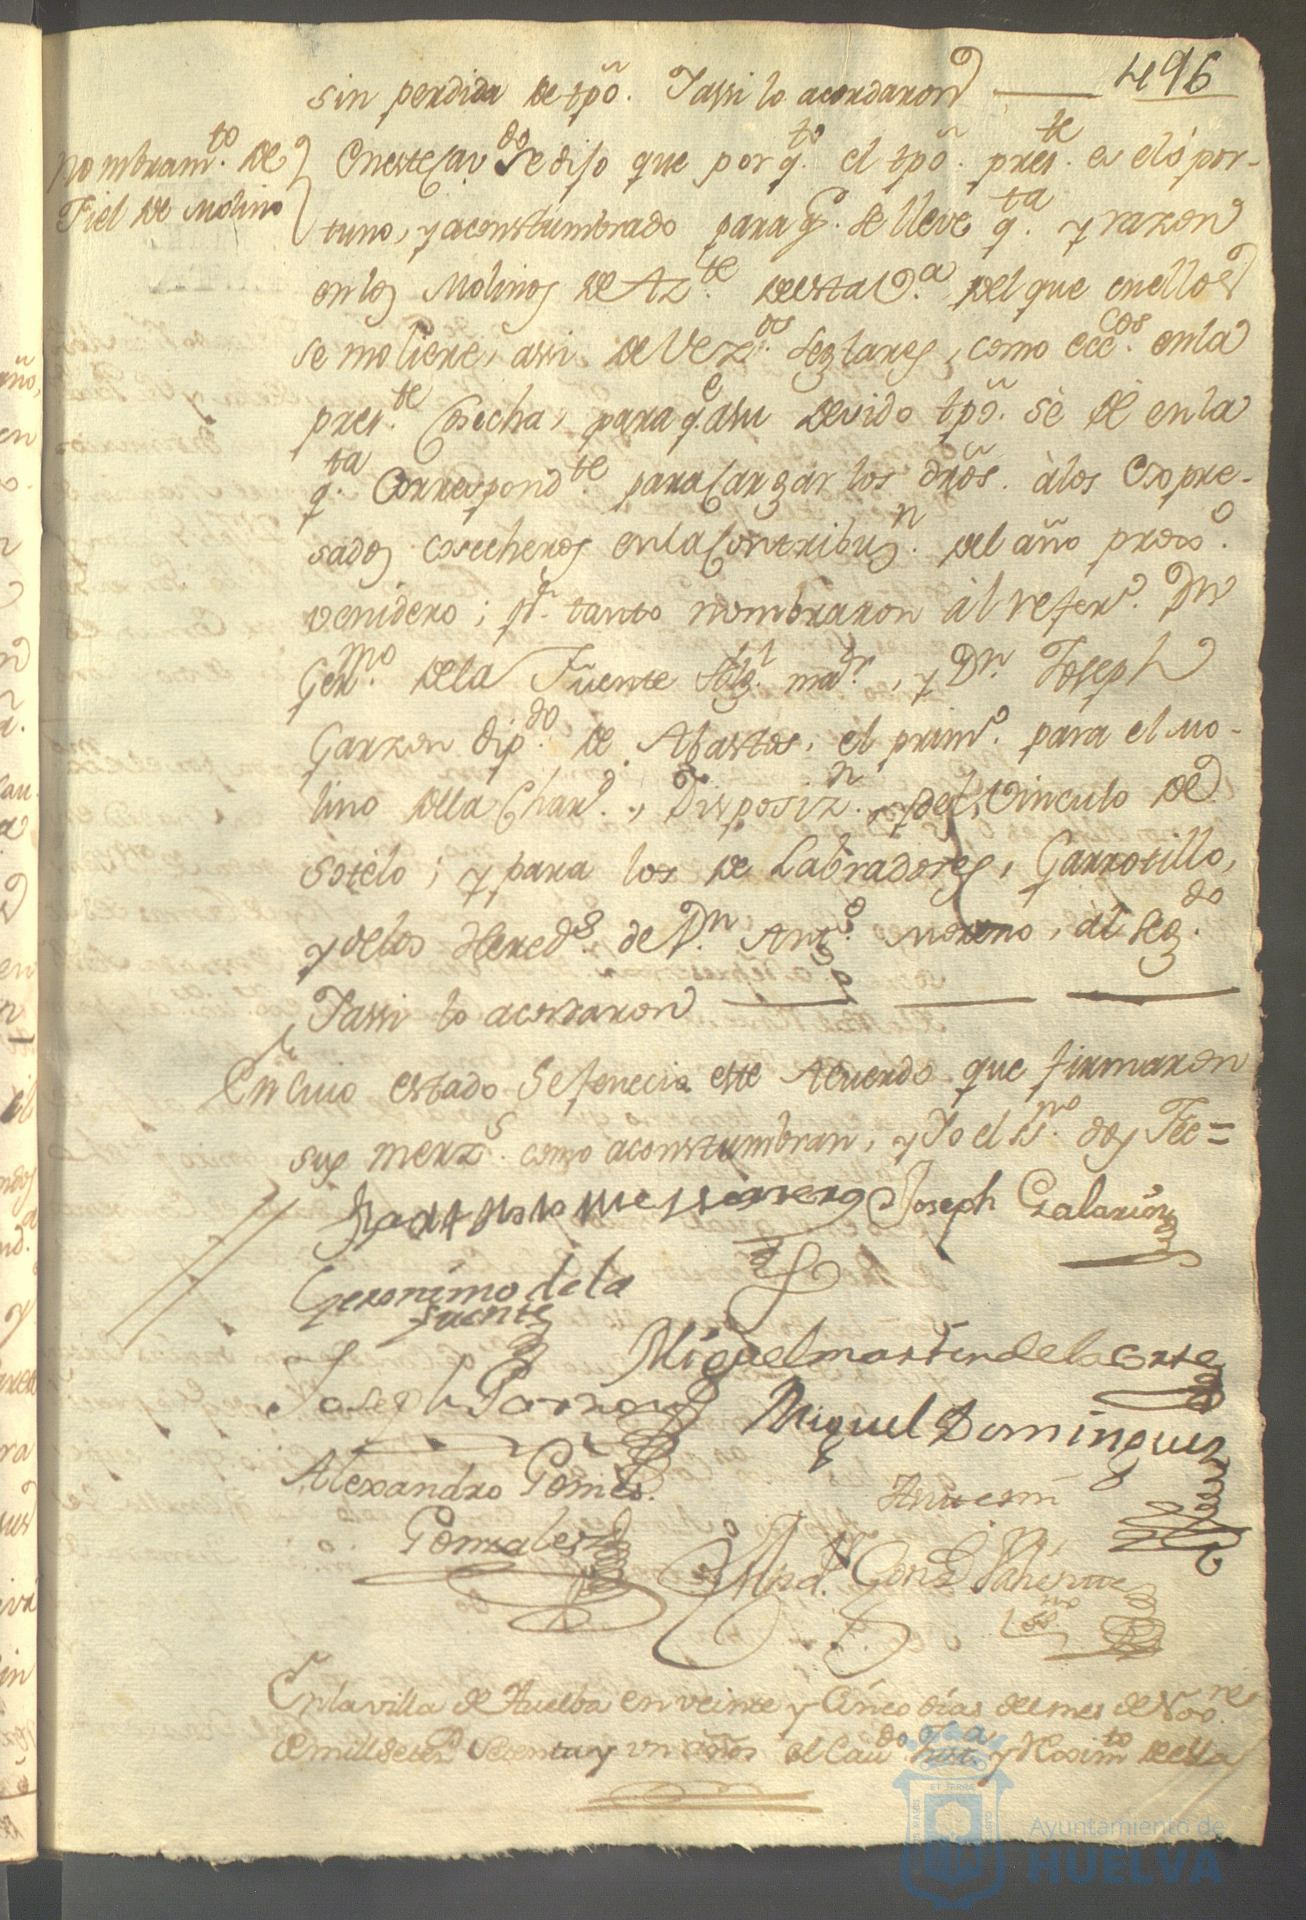 496
sin perdida de tpõ. Yassi lo acordaron
Nombram.to de
Fiel de Molino
En este Cav.do se dijo que por q.to el tpõ. pres.te es el opor-
tuno, y acostumbrado para q.e se lleve q.ta y razon
en los Molinos de Az.te de esta V.a del que en ellos
se moliere, assi de Vez.os seglares, como ecc.cos en la
pres.te Cosecha, para q.e a su devido tpõ. se dè en la
q.ta Correspond.te para Cargar los drõs. à los Expre-
sados cosecheros en la Contribuz.n del año prox.o
venidero; p.r tanto nombraron al refer.o Dn
Ger.mo de la Fuente Alg.l ma.r, y Dn. Joseph
Garzon dip.do de Abastos, el prim.o para el mo-
lino de la Disposiz.n, y del Vinculo de
Sotelo; y para los de Labradores, Garrotillo,
y de los Hered.s de Dn. Ant.o Moreno, al seg.do
Yassi lo acordaron
En Cuio estado se fenecio este Acuerdo que firmaron
sus merz.s como acostumbran, y Yo el ss.no doy Fee=
Joseph Galarion
Geronimo de la
fuente
Miguel martin de la corte
Joseph Garzon
Miguel Dominguez
Alexandro Gomes.
Gonzales
Antte mi
Gonz
ss.no
En la villa de Huelba en veinte y Cinco dias del mes de Nov.re
de mill setez.s Setenta y un años el Cav.do Just.a y Reximt.o de ella
Ayuntamiento de
HUELVA